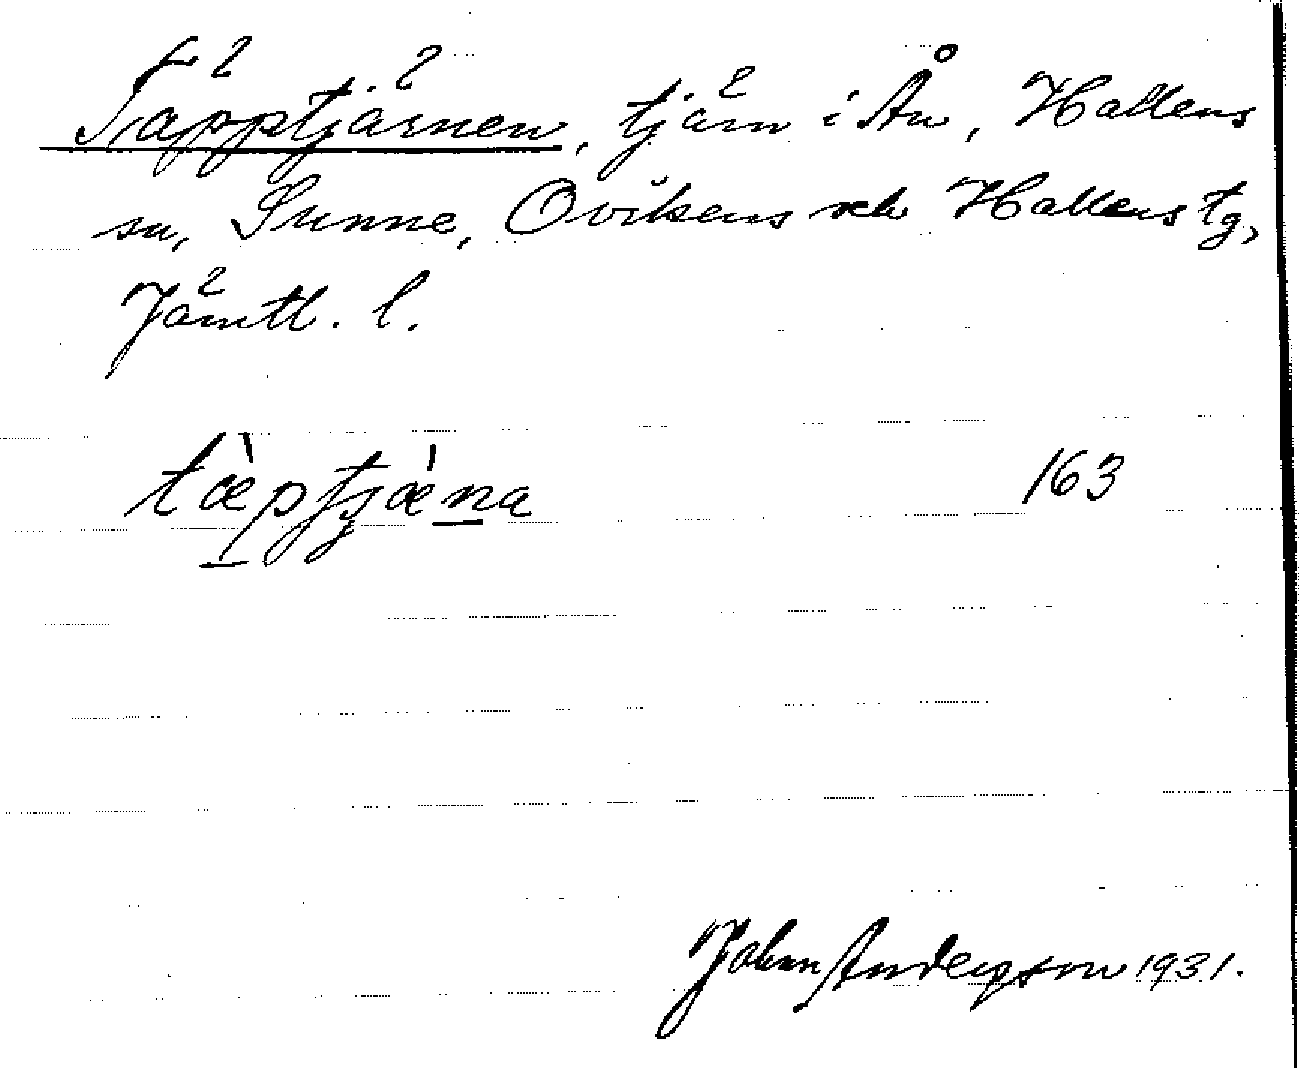 Täpptjärnen, tjärn i Ån, Hallens
sn, Sunne, Ovikens och Hallens tg,
Jämtl. l.
tæ̀ptjæ̀na 163
John Anderson 1931.